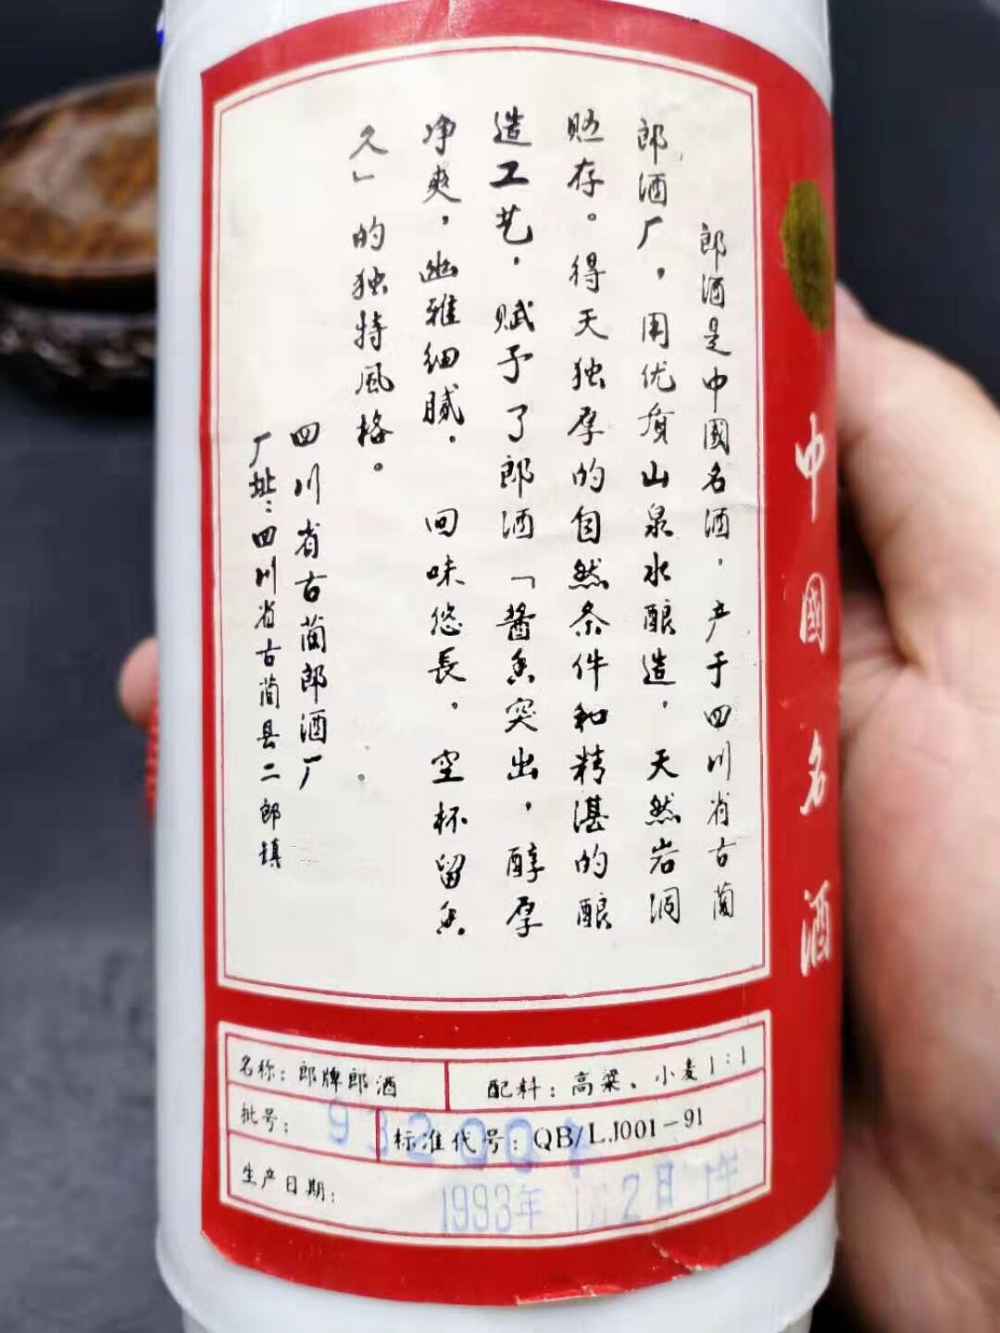 郎酒是中國名酒，产于四川省古蔺
郎酒厂，用优质山泉水酿造，天然岩洞
贮存。得天独厚的自然条件和精湛的酿
造工艺，赋予了郎酒「酱香突出，醇厚
净爽，幽雅细腻，回味悠長，空杯留香
久」的独特風格。
四川省古蔺郎酒厂
厂址：四川省古蔺县二郎镇
中國名酒
名称：郎牌郎酒
配料：高粱、小麦1：1
批号：
标准代号：QB/LJ001-91
生产日期：
1993年